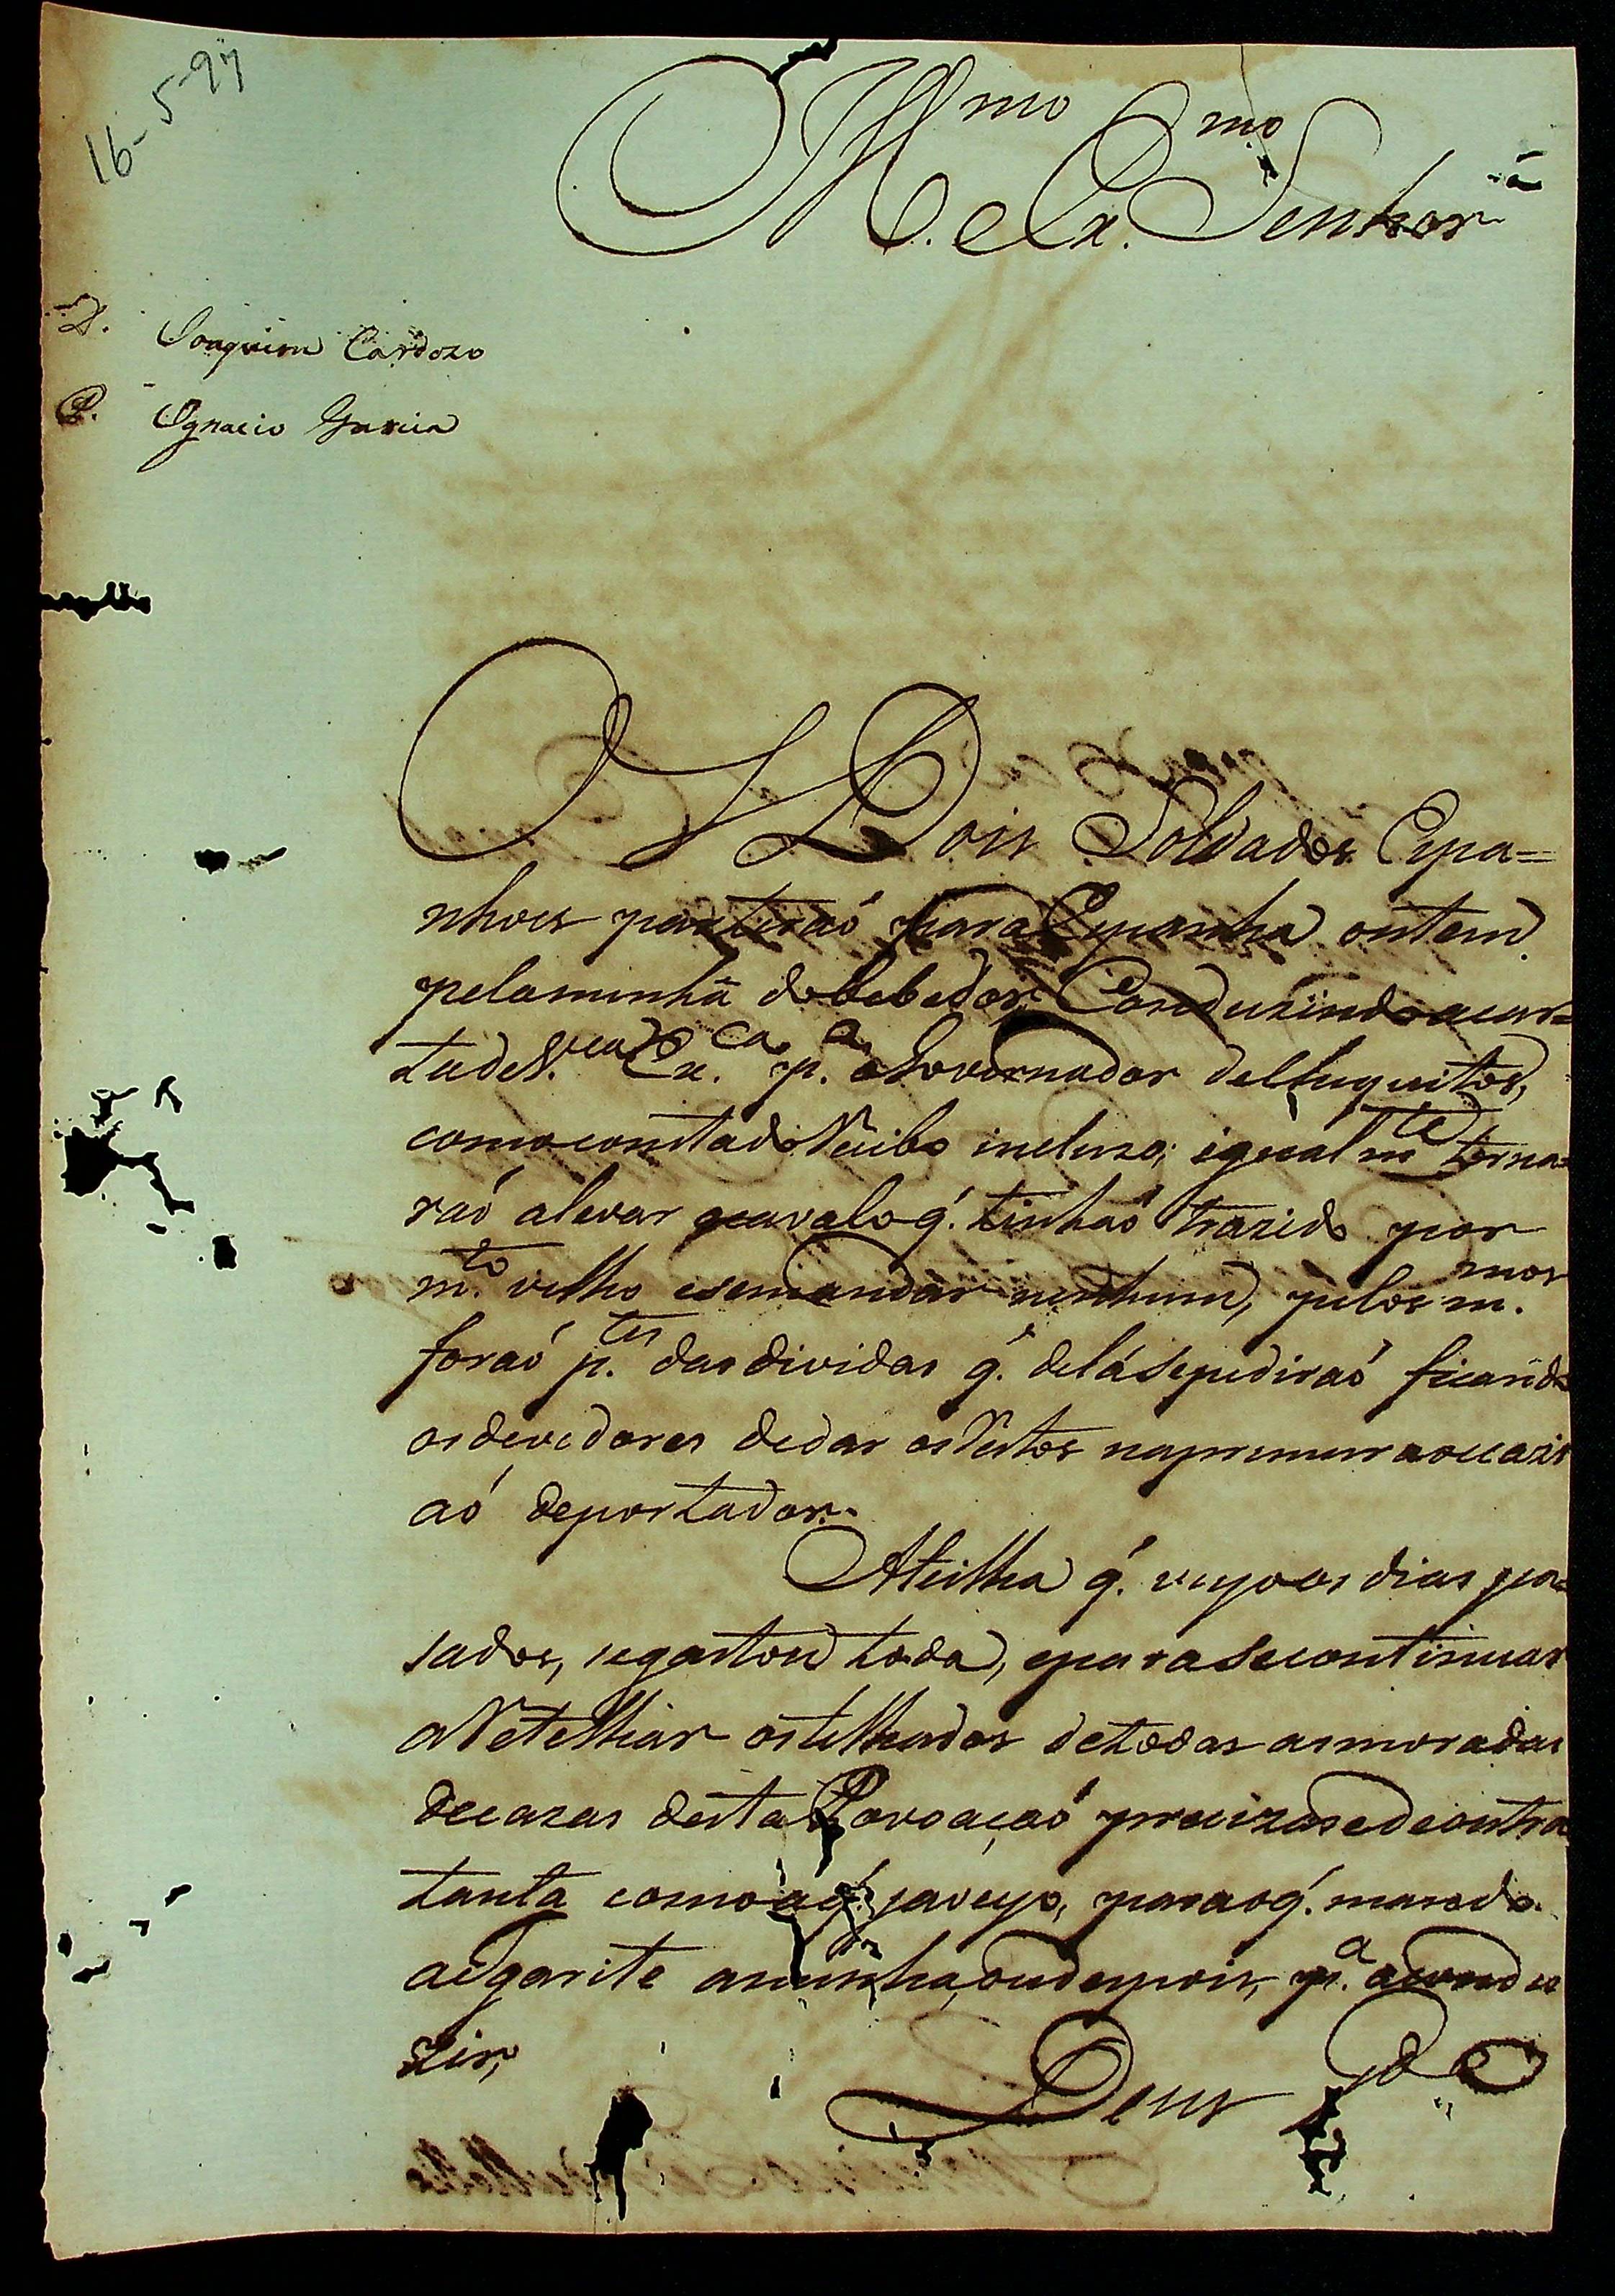 16-5-97
Ill.mo e Ex.mo Senhor
D. Joaquim Cardozo
P. Ignacio Garcia
Os Dois Soldados Espa=
nhoes partiraó para Espanha ontem
pelaminhã do bebedor, Conduzindo acar=
ta de V.ca Ex.ca p.a o Governador de Chiquitos,
como consta do Recibo incluzo; igualm.te torna=
raó alevar o cavalo q.' tinhaó trazido por
m.to velho e semandar nenhum, pelos m.mos
foraó p.tes das dividas q.' delá sepediraó ficando
os devedores de dar os Restos na primeira occazi
aó de portador.
A telha q.' veyo os dias pa=
sados, se gastou toda, e para se continuar
a Retelhar os telhados de todas as moradas
de cazas desta Povoaçaó precizase de outra
tanta como a q.' ja veyo, para o q.' mando
a Igarite aminha, ou depois, p.a a condu
zir,
Deus g.de